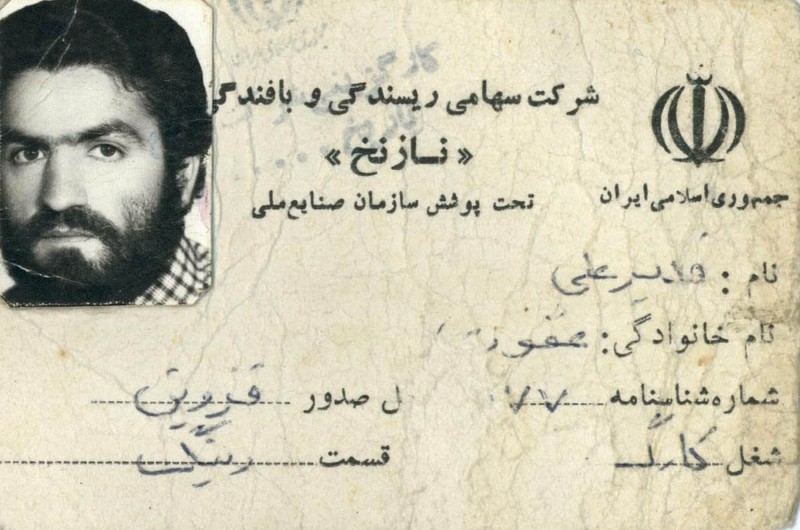 شرکت سهامی ریسندگی و بافندگی
« نازنخ »
جمهوری اسلامی ایران
تحت پوشش سازمان صنایع ملی
نام : قدیرعلی
نام خانوادگی:
شماره شناسنامه ۷۷ ل صدور قزوین
شغل کارگر قسمت رینگ